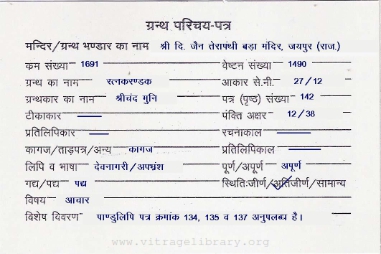 ग्रन्थ परिचय-पत्र
मन्दिर/ग्रन्थ भण्डार का नाम श्री दि. जैन तेरापंथी बड़ा मंदिर, जयपुर (राज.)
क्रम संख्या 1691 वेष्टन संख्या 1490
ग्रन्थ का नाम रत्नकरण्डक आकार से.मी. 27/12
ग्रन्थकार का नाम श्रीचंद मुनि पत्र (पृष्ठ) संख्या 142
टीकाकार पंक्ति अक्षर 12/38
प्रतिलिपिकार रचनाकाल
कागज/ताड़पत्र/अन्य कागज प्रतिलिपिकाल
लिपि व भाषा देवनागरी/अपभ्रंश पूर्ण/अपूर्ण अपूर्ण
गद्य/पद्य पद्य स्थिति:जीर्ण/अतिजीर्ण/सामान्य
विषय आचार
विशेष विवरण पाण्डुलिपि पत्र क्रमांक 134, 135 व 137 अनुपलब्ध है।
www.vitragelibrary.org